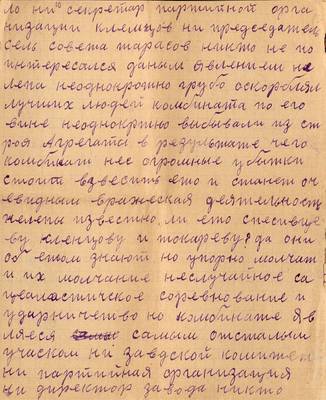 ло ни секретар партийной орга
низации клемцов ни председатель
сель совета тарасов никто не по
интересался даным явлением не
лепа неоднокротно грубо оскорблял
лучших людей комбината по его
вине неоднокртно выбывали из ст
роя Агрегаты в результате чего
комбинат нес огромные убытки
стоит взвесить ето и станет оч
евидным вражеская деятельность
нелепы известно ли ето спесивце
ву кленцову и токареву? да они
об етом знают но упорно молчат
и их молчание неслучайное са
циаластическое соревнование и
ударничетво но комбинате яв
ляеся самым отсталым
учаском ни завдской комитет
ни партийная организация
ни директор завода никто